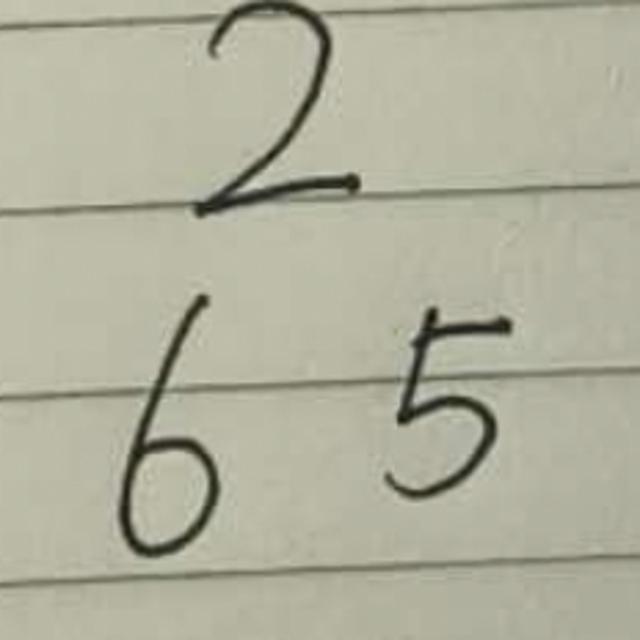 2
6 5